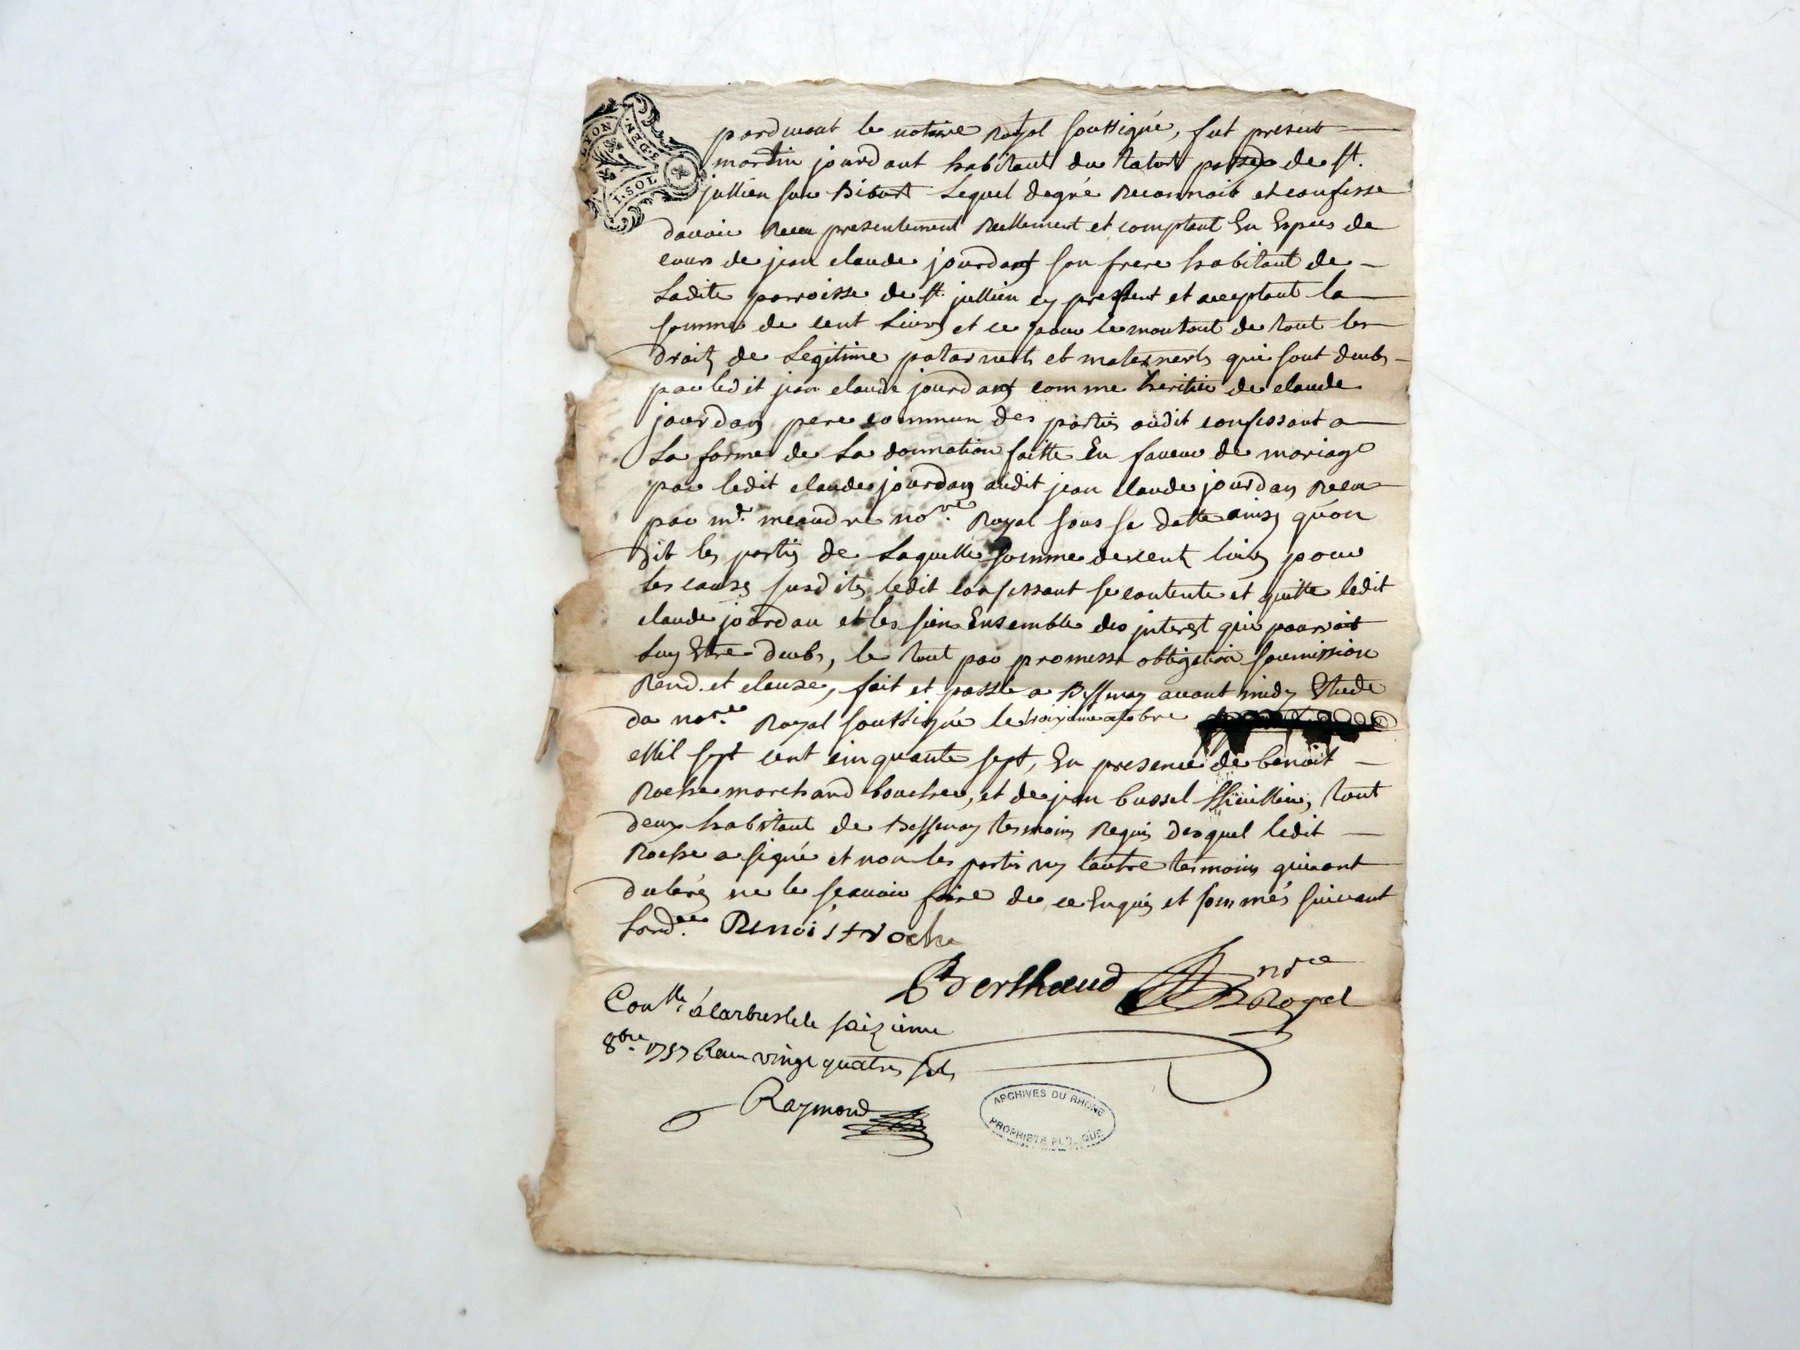 LYON GEN·S
1·SOL
pardevant le notaire Royal soussigné, fut présent
martin jourdant habitant du parse de St.
jullien sur Bibost Lequel de gré Reconnoit et confesse
davoir Receu presentement Reellement et comptant En Espees de
cours de jean claude jourdant son frere habitant de
Ladite parroisse de St. jullien cy present et acceptant la
somme de cent Livres et ce pour le montant de tout les
droitz de Legitime paternerls et maternerls qui sont deubs
par ledit jean claude jourdant comme heritier de claude
jourdan pere commun des parties audit confessant a
La forme de La donnation faitte En faveur de mariage
par ledit claude jourdan audit jean claude jourdan Receu
par me. meandre nore. Royal sous sa datte ainsy qu'on
dit les partis de Laquelle somme de cent livres pour
les causes susdites ledit confessant se contente et quitte ledit
claude jourdan et les sien Ensemble des interest qui pourroit
Luy Etre deubs, le tout par promesse obligation soumission
Rend. et clause, fait et passé a Bessenay avant midy Etude
du nore. Royal soussigné le treizieme octobre
Mil sept cent cinquante sept, En presence de benoit
Roche marchand boucher, et de jean bussel tout
deux habitant de Bessenay temoins Requis desquel ledit
Roche a signé et non les partis ny l'autre temoins qui ont
declaré ne le scavoir faire de ce Enquis et sommés suivant
Lord.ce Benoist roche
Berthaud nre
Royal
Conlle. à larbresle le seizieme
8bre. 1757 Receu vingt quatre sols
Raymond
ARCHIVES DU RHONE
PROPRIETE PUBLIQUE